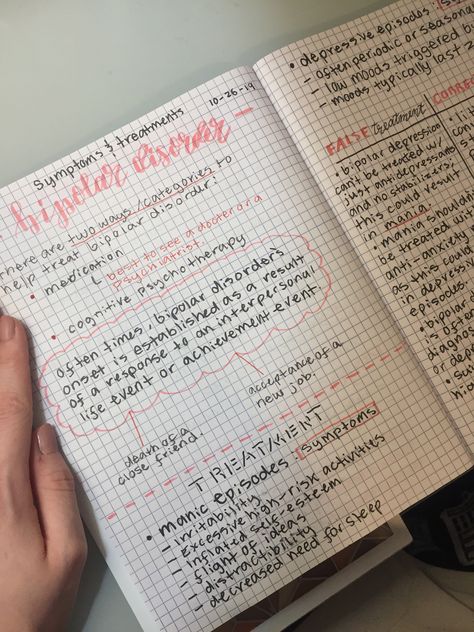 symptoms & treatments
10-26-19
bipolar disorder
There are two ways/categories to
help treat bipolar disorder:
• medication
↳ best to see a doctor or a
psychiatrist.
• cognitive psychotherapy
often times, bipolar disorder's
onset is established as a result
of a response to an interpersonal
life event or achievement event.
death of a
close friend.
acceptance of a
new job.
TREATMENT
• manic episodes: symptoms
- irritability
- Excessive high-risk activities
- inflated self-esteem
- flight of ideas
- distractibility
- decreased need for sleep
• depressive episodes:
- often periodic or seasonal
- low moods triggered
- moods typically last
FALSE treatment
• bipolar depression
can't be treated w/
just antidepressants
and no stabilizers;
this could result
in mania.
• mania should
be treated w/
anti-anxiety
as this could
in depressive
episodes.
• bipolar
is often
diagnos
or dea
• sui
hi